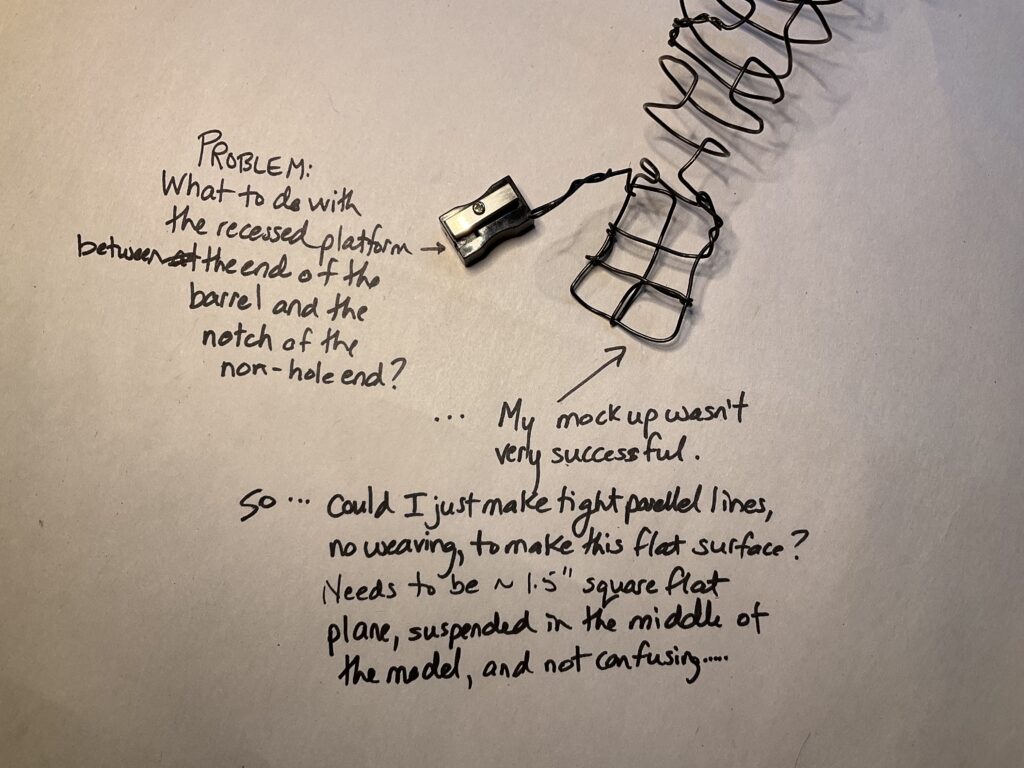 PROBLEM:
What to do with
the recessed platform →
between the end of the
barrel and the
notch of the
non-hole end?
... My mock up wasn't
very successful.
So ... Could I just make tight parallel lines,
no weaving, to make this flat surface?
Needs to be ~ 1.5" square flat
plane, suspended in the middle of
the model, and not confusing.....